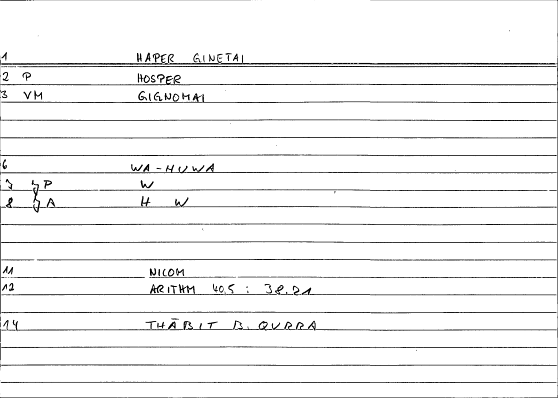 1 HAPER GINETAI
2 P HOSPER
3 VM GIGNOMAI
6 WA-HUWA
7 P W
8 A H W
11 NICOM
12 ARITHM 40,5 : 38.21
14 THĀBIT B. QURRA